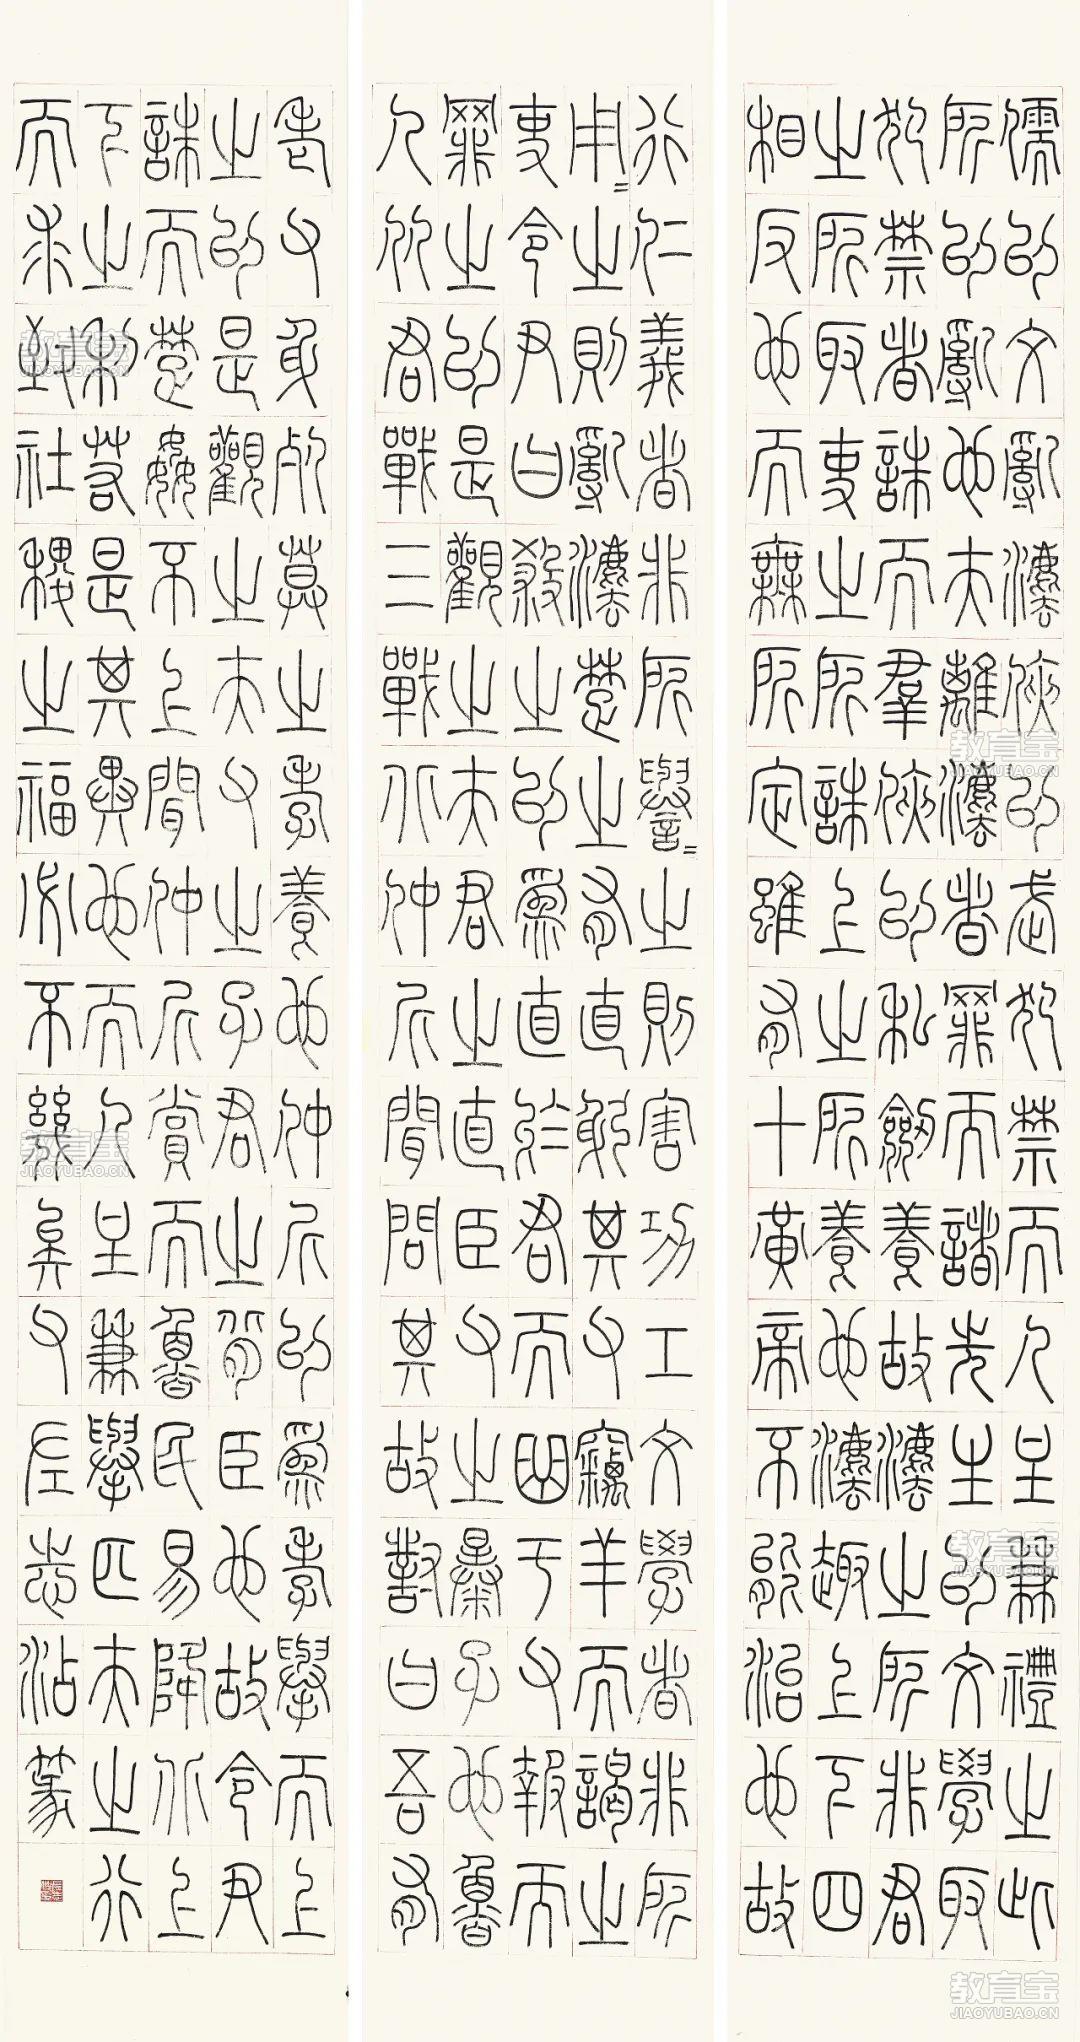 儒以文亂法俠以武犯禁而人主兼禮之此
所以亂也夫離法者罪而諸先生以文學取
犯禁者誅而羣俠以私劍養故法之所非君
之所取吏之所誅上之所養也法趣上下四
相反也而無所定雖有十黃帝不能治也故
行仁義者非所譽=之則害功工文學者非所
用=之則亂法楚之有直躬其父竊羊而謁之
吏令尹曰殺之以爲直於君而曲于父報而
罪之以是觀之夫君之直臣父之暴子也魯
人从君戰三戰北仲尼聞問其故對曰吾有
老父身死莫之孝養也仲尼以爲孝舉而上
之以是觀之夫父之子君之背臣也故令尹
誅而楚姦不上聞仲尼賞而魯民易降北上
下之利若是其異也而人主兼舉匹夫之行
而求致社稷之福必不幾矣父左志沾篆
教育宝
JIAOYUBAO.CN